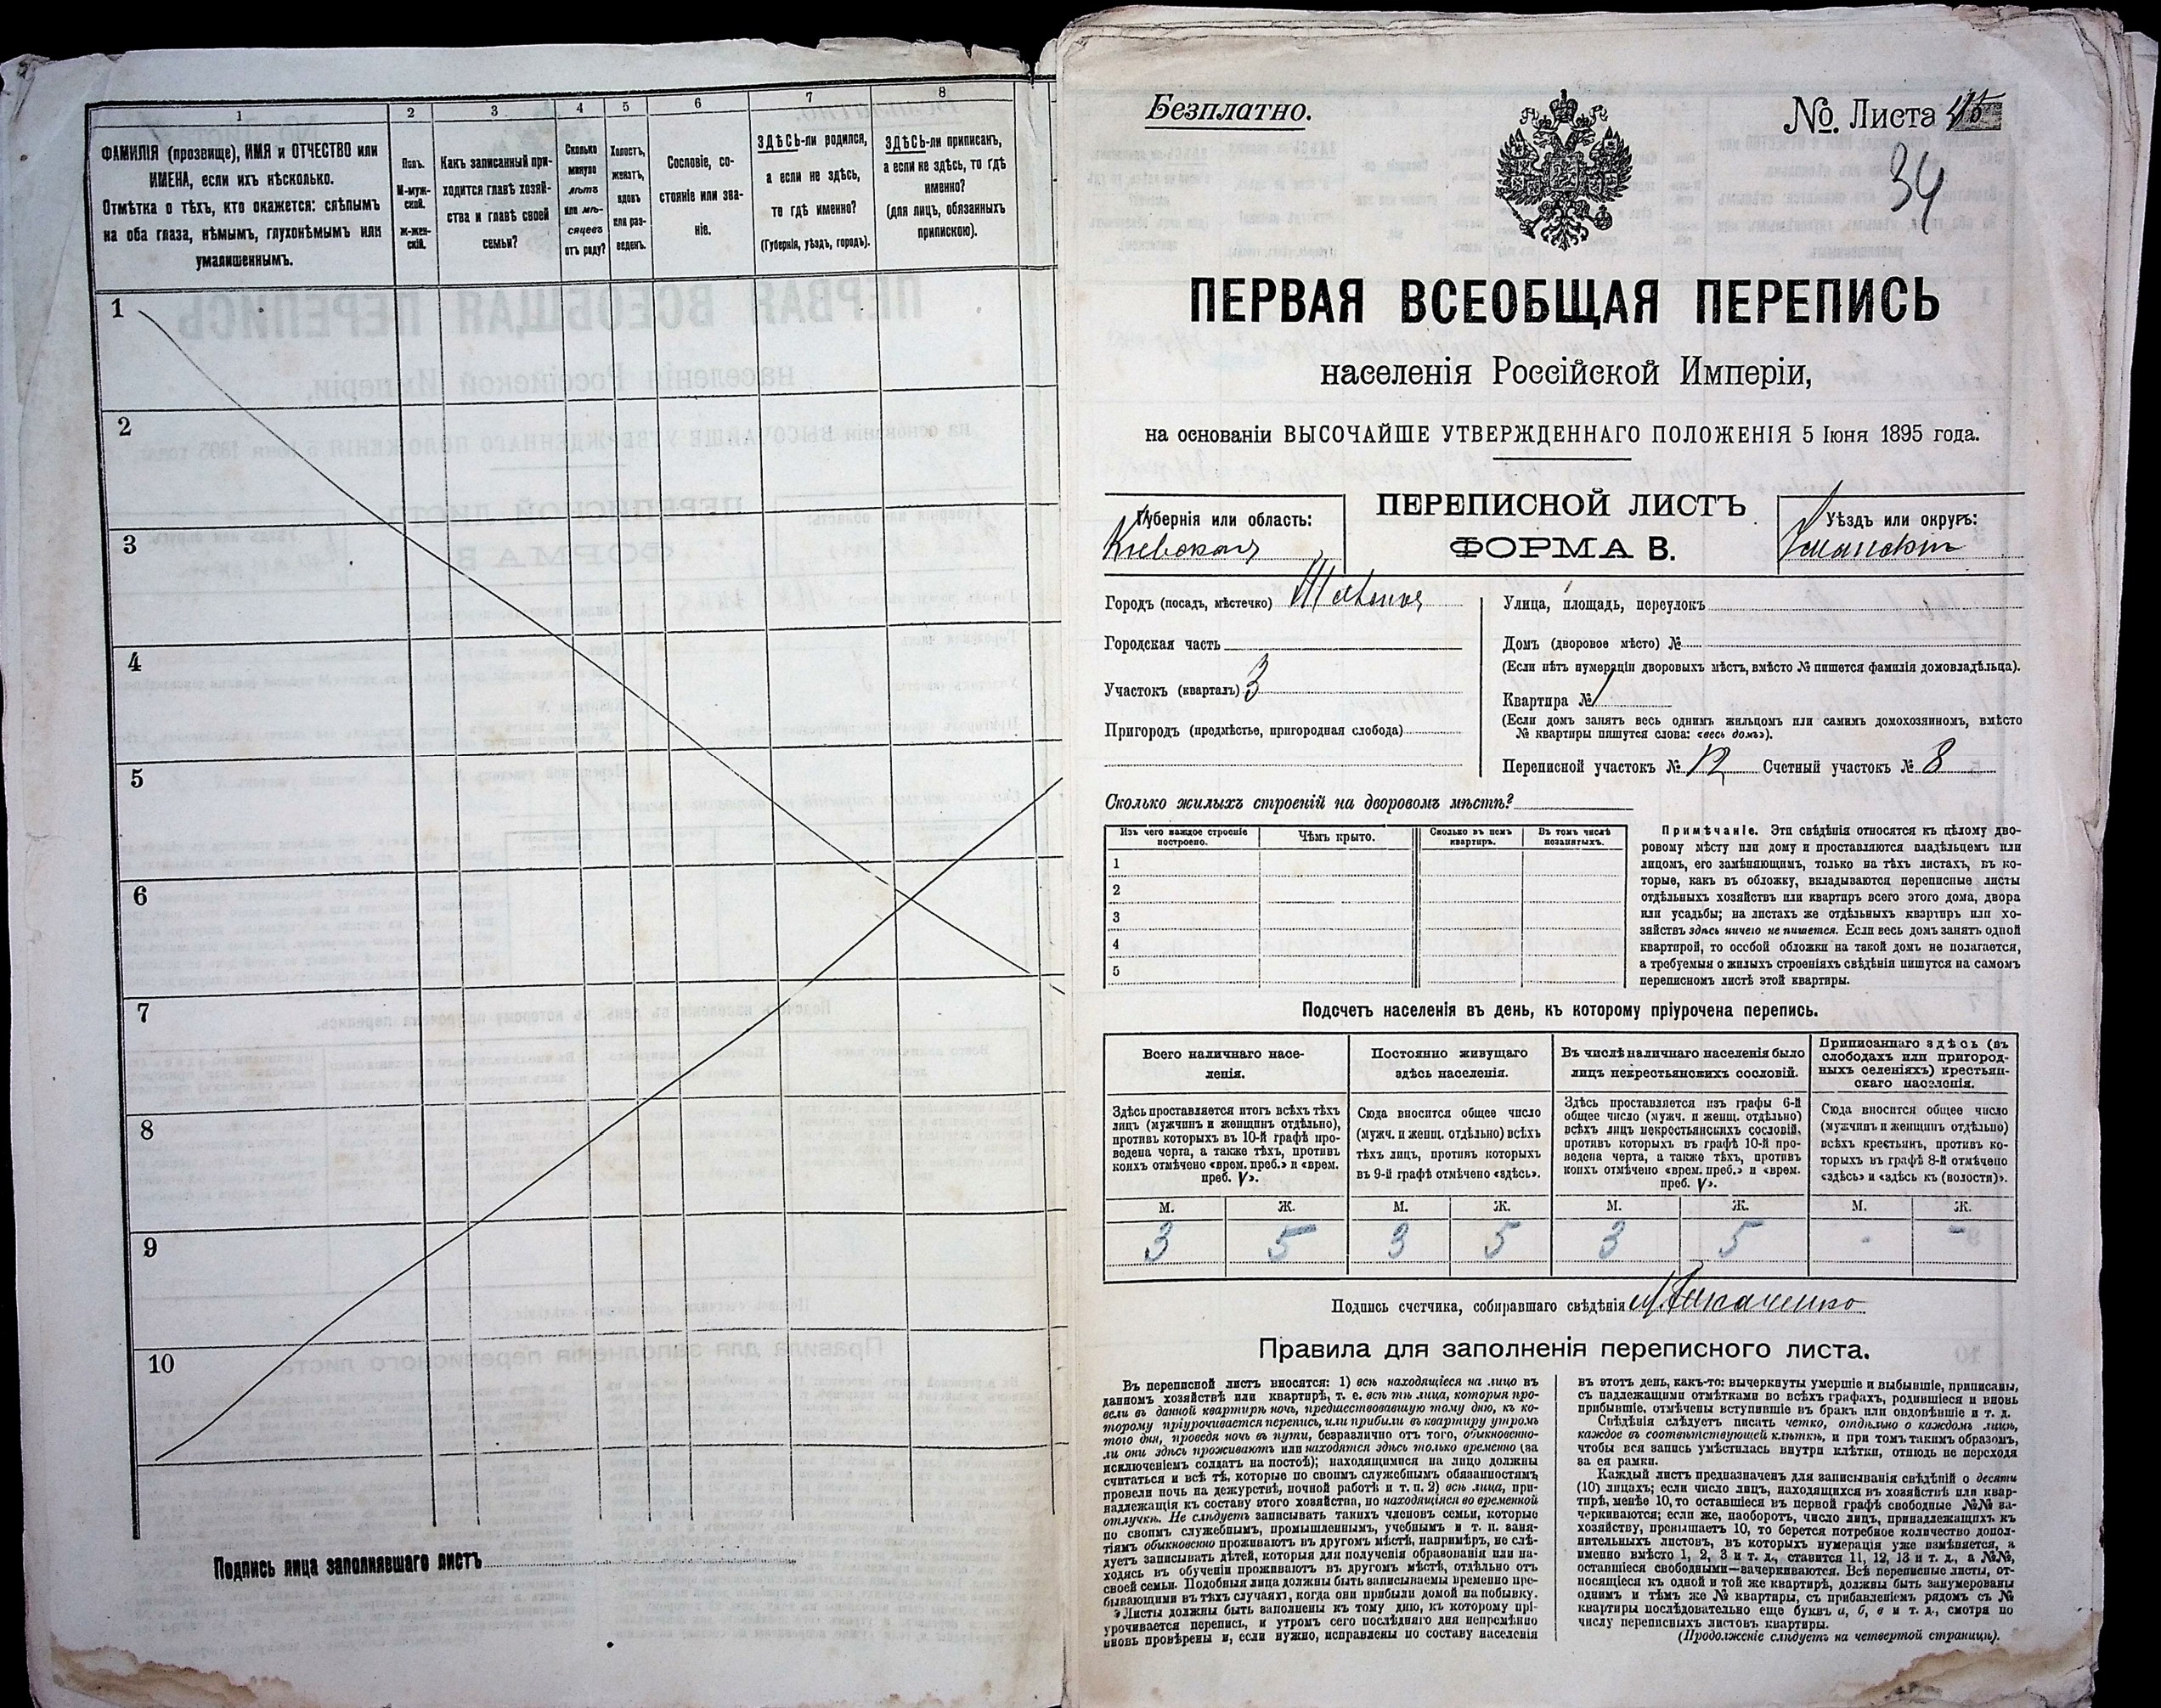 1 2 3 4 5 6 7 8
ФАМИЛІЯ (прозвище), ИМЯ и ОТЧЕСТВО или
ИМЕНА, если ихъ нѣсколько.
Отмѣтка о тѣхъ, кто окажется: слѣпымъ
на оба глаза, нѣмымъ, глухонѣмымъ или
умалишеннымъ.
Полъ.
М-муж-
ской.
Ж-жен-
скій.
Какъ записанный при-
ходится главѣ хозяй-
ства и главѣ своей
семьи?
Сколько
минуло
лѣтъ
или мѣ-
сяцевъ
отъ роду?
Холостъ,
женатъ,
вдовъ
или раз-
веденъ.
Сословіе, со-
стояніе или зва-
ніе.
ЗДѢСЬ-ли родился,
а если не здѣсь,
то гдѣ именно?
(Губернія, уѣздъ, городъ).
ЗДѢСЬ-ли приписанъ,
а если не здѣсь, то гдѣ
именно?
(для лицъ, обязанныхъ
припискою).
1
2
3
4
5
6
7
8
9
10
Подпись лица заполнявшаго листъ
Безплатно.
№ Листа 45
34
ПЕРВАЯ ВСЕОБЩАЯ ПЕРЕПИСЬ
населенія Россійской Имперіи,
на основаніи ВЫСОЧАЙШЕ УТВЕРЖДЕННАГО ПОЛОЖЕНІЯ 5 Іюня 1895 года.
Губернія или область:
Кіевская
ПЕРЕПИСНОЙ ЛИСТЪ
ФОРМА В.
Уѣздъ или округъ:
Уманскій
Городъ (посадъ, мѣстечко)
Городская часть
Участокъ (кварталъ) 3
Пригородъ (предмѣстье, пригородная слобода)
Улица, площадь, переулокъ
Домъ (дворовое мѣсто) №
(Если нѣтъ нумераціи дворовыхъ мѣстъ, вмѣсто № пишется фамилія домовладѣльца).
Квартира № 1
(Если домъ занятъ весь однимъ жильцомъ или самимъ домохозяиномъ, вмѣсто
№ квартиры пишутся слова: «весь домъ»).
Переписной участокъ № 12 Счетный участокъ № 8
Сколько жилыхъ строеній на дворовомъ мѣстѣ?
Изъ чего каждое строеніе
построено.
Чѣмъ крыто.
Сколько въ немъ
квартиръ.
Въ томъ числѣ
незанятыхъ.
1
2
3
4
5
Примѣчаніе. Эти свѣдѣнія относятся къ цѣлому дво-
ровому мѣсту или дому и проставляются владѣльцемъ или
лицомъ, его замѣняющимъ, только на тѣхъ листахъ, въ ко-
торые, какъ въ обложку, вкладываются переписные листы
отдѣльныхъ хозяйствъ или квартиръ всего этого дома, двора
или усадьбы; на листахъ же отдѣльныхъ квартиръ или хо-
зяйствъ здѣсь ничего не пишется. Если весь домъ занятъ одной
квартирой, то особой обложки на такой домъ не полагается,
а требуемыя о жилыхъ строеніяхъ свѣдѣнія пишутся на самомъ
переписномъ листѣ этой квартиры.
Подсчетъ населенія въ день, къ которому пріурочена перепись.
Всего наличнаго насе-
ленія.
Постоянно живущаго
здѣсь населенія.
Въ числѣ наличнаго населенія было
лицъ некрестьянскихъ сословій.
Приписаннаго здѣсь (въ
слободахъ или пригород-
ныхъ селеніяхъ) крестьян-
скаго населенія.
Здѣсь проставляется итогъ всѣхъ тѣхъ
лицъ (мужчинъ и женщинъ отдѣльно),
противъ которыхъ въ 10-й графѣ про-
ведена черта, а также тѣхъ, противъ
коихъ отмѣчено «врем. преб.» и «врем.
преб. V».
Сюда вносится общее число
(мужч. и женщ. отдѣльно) всѣхъ
тѣхъ лицъ, противъ которыхъ
въ 9-й графѣ отмѣчено «здѣсь».
Здѣсь проставляется изъ графы 6-й
общее число (мужч. и женщ. отдѣльно)
всѣхъ лицъ некрестьянскихъ сословій,
противъ которыхъ въ графѣ 10-й про-
ведена черта, а также тѣхъ, противъ
коихъ отмѣчено «врем. преб.» и «врем.
преб. V».
Сюда вносится общее число
(мужчинъ и женщинъ отдѣльно)
всѣхъ крестьянъ, противъ ко-
торыхъ въ графѣ 8-й отмѣчено
«здѣсь» и «здѣсь къ (волости)».
М. Ж. М. Ж. М. Ж. М. Ж.
3 5 3 5 3 5 - -
Подпись счетчика, собиравшаго свѣдѣнія
Правила для заполненія переписного листа.
Въ переписной листъ вносятся: 1) всѣ находящіеся на лицо въ
данномъ хозяйствѣ или квартирѣ, т. е. всѣ тѣ лица, которыя про-
вели въ данной квартирѣ ночь, предшествовавшую тому дню, къ ко-
торому пріурочивается перепись, или прибыли въ квартиру утромъ
того дня, проведя ночь въ пути, безразлично отъ того, обыкновенно-
ли они здѣсь проживаютъ или находятся здѣсь только временно (за
исключеніемъ солдатъ на постоѣ); находящимися на лицо должны
считаться и всѣ тѣ, которые по своимъ служебнымъ обязанностямъ
провели ночь на дежурствѣ, ночной работѣ и т. п. 2) всѣ лица, при-
надлежащія къ составу этого хозяйства, но находящіяся во временной
отлучкѣ. Не слѣдуетъ записывать такихъ членовъ семьи, которые
по своимъ служебнымъ, промышленнымъ, учебнымъ и т. п. заня-
тіямъ обыкновенно проживаютъ въ другомъ мѣстѣ, напримѣръ, не слѣ-
дуетъ записывать дѣтей, которыя для полученія образованія или на-
ходясь въ обученіи проживаютъ въ другомъ мѣстѣ, отдѣльно отъ
своей семьи. Подобныя лица должны быть записываемы временно пре-
бывающими въ тѣхъ случаяхъ, когда они прибыли домой на побывку.
Листы должны быть заполнены къ тому дню, къ которому прі-
урочивается перепись, и утромъ сего послѣдняго дня непремѣнно
вновь провѣрены и, если нужно, исправлены по составу населенія
въ этотъ день, какъ-то: вычеркнуты умершіе и выбывшіе, приписаны,
съ надлежащими отмѣтками во всѣхъ графахъ, родившіеся и вновь
прибывшіе, отмѣчены вступившіе въ бракъ или овдовѣвшіе и т. д.
Свѣдѣнія слѣдуетъ писать четко, отдѣльно о каждомъ лицѣ,
каждое въ соотвѣтствующей клѣткѣ, и при томъ такимъ образомъ,
чтобы вся запись умѣстилась внутри клѣтки, отнюдь не переходя
за ея рамки.
Каждый листъ предназначенъ для записыванія свѣдѣній о десяти
(10) лицахъ; если число лицъ, находящихся въ хозяйствѣ или квар-
тирѣ, менѣе 10, то оставшіеся въ первой графѣ свободные №№ за-
черкиваются; если же, наоборотъ, число лицъ, принадлежащихъ къ
хозяйству, превышаетъ 10, то берется потребное количество допол-
нительныхъ листовъ, въ которыхъ нумерація уже измѣняется, а
именно вмѣсто 1, 2, 3 и т. д., ставится 11, 12, 13 и т. д., а №№,
оставшіеся свободными—зачеркиваются. Всѣ переписные листы, от-
носящіеся къ одной и той же квартирѣ, должны быть занумерованы
однимъ и тѣмъ же № квартиры, съ прибавленіемъ рядомъ съ №
квартиры послѣдовательно еще буквъ а, б, в и т. д., смотря по
числу переписныхъ листовъ квартиры.
(Продолженіе слѣдуетъ на четвертой страницѣ).